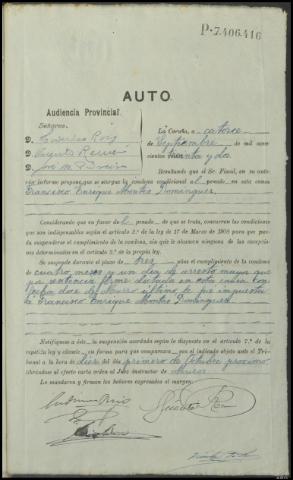 P-7.406.416
AUTO.
Audiencia Provincial.
Señores.
D.
D.
D. José
La Coruña, a catorce
de Septiembre de mil nove-
cientos treinta y dos
Resultando que el Sr. Fiscal, en an-
terior informe propone que se otorgue la condena condicional al penado en esta causa
Francisco Enrique Montes Dominguez.
Considerando que en favor del penado de que se trata, concurren las condiciones
que son indispensables según el artículo 2.º de la ley de 17 de Marzo de 1908 para que pue-
da suspenderse el cumplimiento de la condena, sin que le alcancen ninguna de las excepciones
determinadas en el artículo 3.º de la propia ley.
Se suspende durante el plazo de tres años el cumplimiento de la condena
de cuatro meses y un dia de arresto mayor que
por sentencia firme dictada en esta causa con
fecha doce de último se le impuso
a Francisco Enrique Montes Dominguez
Notifíquese a éste la suspensión acordada según lo dispuesto en el artículo 7.º de la
repetida ley y cítesele en forma para que comparezca con el indicado objeto ante el Tri-
bunal a la hora de diez del día primero de Octubre proximo
librándose al efecto carta orden al Juez instructor de Muros
Lo mandaron y firman los señores expresados al margen.